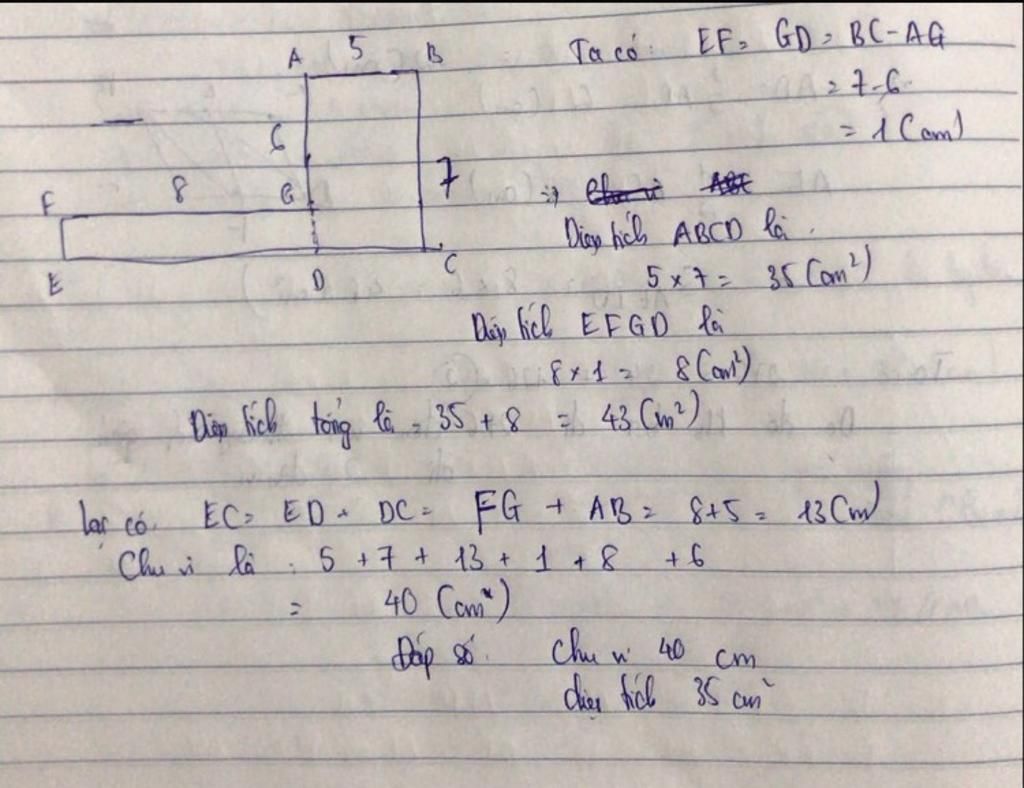 A 5 B
6
7
F 8 G
E D C
Ta có: EF = GD = BC - AG
= 7-6
= 1 (cm)
=>
Diện tích ABCD là
5 x 7 = 35 (cm²)
Diện tích EFGD là
8 x 1 = 8 (cm²)
Diện tích tổng là = 35 + 8 = 43 (m²)
Lại có. EC = ED + DC = FG + AB = 8+5 = 13 (cm)
Chu vi là : 5 + 7 + 13 + 1 + 8 + 6
= 40 (cm)
Đáp số. Chu vi 40 cm
diện tích 35 cm²